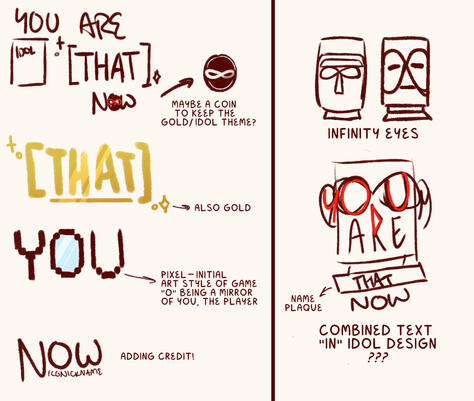 YOU ARE
IDOL
[THAT]
NOW
MAYBE A COIN
TO KEEP THE
GOLD/IDOL THEME?
[THAT]
ALSO GOLD
YOU
PIXEL-INITIAL
ART STYLE OF GAME
"O" BEING A MIRROR
OF YOU, THE PLAYER
NOW
ICGNICKNAME
ADDING CREDIT!
INFINITY EYES
YOU
ARE
THAT
NOW
NAME
PLAQUE
COMBINED TEXT
"IN" IDOL DESIGN
???